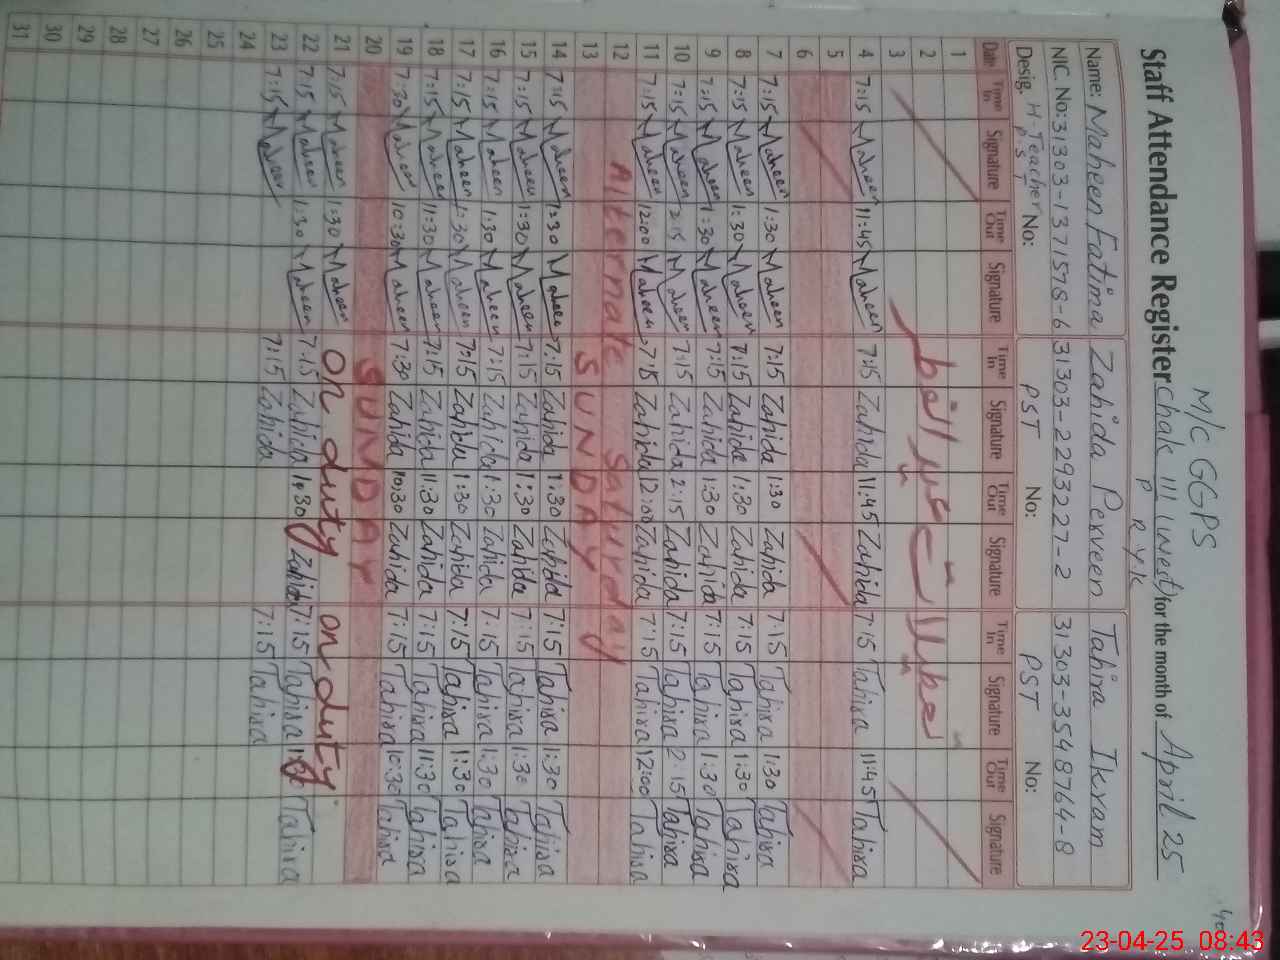 M/C GGPS
Staff Attendance Register Chak 111 P West R.Y.K for the month of April 25
Name: Maheen Fatima Zahida Perveen Tahira Ikram
NIC No: 31303-1371578-6 31303-2293227-2 31303-3548764-8
Desig. H-Teacher PST No: PST No: PST No:
Date Time In Signature Time Out Signature Time In Signature Time Out Signature Time In Signature Time Out Signature
1
2
3
4 7:15 Maheen 11:45 Maheen 7:15 Zahida 11:45 Zahida 7:15 Tahira 11:45 Tahira
5
6
7 7:15 Maheen 1:30 Maheen 7:15 Zahida 1:30 Zahida 7:15 Tahira 1:30 Tahira
8 7:15 Maheen 1:30 Maheen 7:15 Zahida 1:30 Zahida 7:15 Tahira 1:30 Tahira
9 7:15 Maheen 1:30 Maheen 7:15 Zahida 1:30 Zahida 7:15 Tahira 1:30 Tahira
10 7:15 Maheen 2:15 Maheen 7:15 Zahida 2:15 Zahida 7:15 Tahira 2:15 Tahira
11 7:15 Maheen 12:00 Maheen 7:15 Zahida 12:00 Zahida 7:15 Tahira 12:00 Tahira
12 Alternate Saturday
13 SUNDAY
14 7:15 Maheen 1:30 Maheen 7:15 Zahida 1:30 Zahida 7:15 Tahira 1:30 Tahira
15 7:15 Maheen 1:30 Maheen 7:15 Zahida 1:30 Zahida 7:15 Tahira 1:30 Tahira
16 7:15 Maheen 1:30 Maheen 7:15 Zahida 1:30 Zahida 7:15 Tahira 1:30 Tahira
17 7:15 Maheen 1:30 Maheen 7:15 Zahida 1:30 Zahida 7:15 Tahira 1:30 Tahira
18 7:15 Maheen 11:30 Maheen 7:15 Zahida 11:30 Zahida 7:15 Tahira 11:30 Tahira
19 7:30 Maheen 10:30 Maheen 7:30 Zahida 10:30 Zahida 7:15 Tahira 10:30 Tahira
20 SUNDAY
21 7:15 Maheen 1:30 Maheen on duty on duty
22 7:15 Maheen 1:30 Maheen 7:15 Zahida 1:30 Zahida 7:15 Tahira 1:30 Tahira
23 7:15 Maheen 7:15 Zahida 7:15 Tahira
24
25
26
27
28
29
30
31
23-04-25 08:43